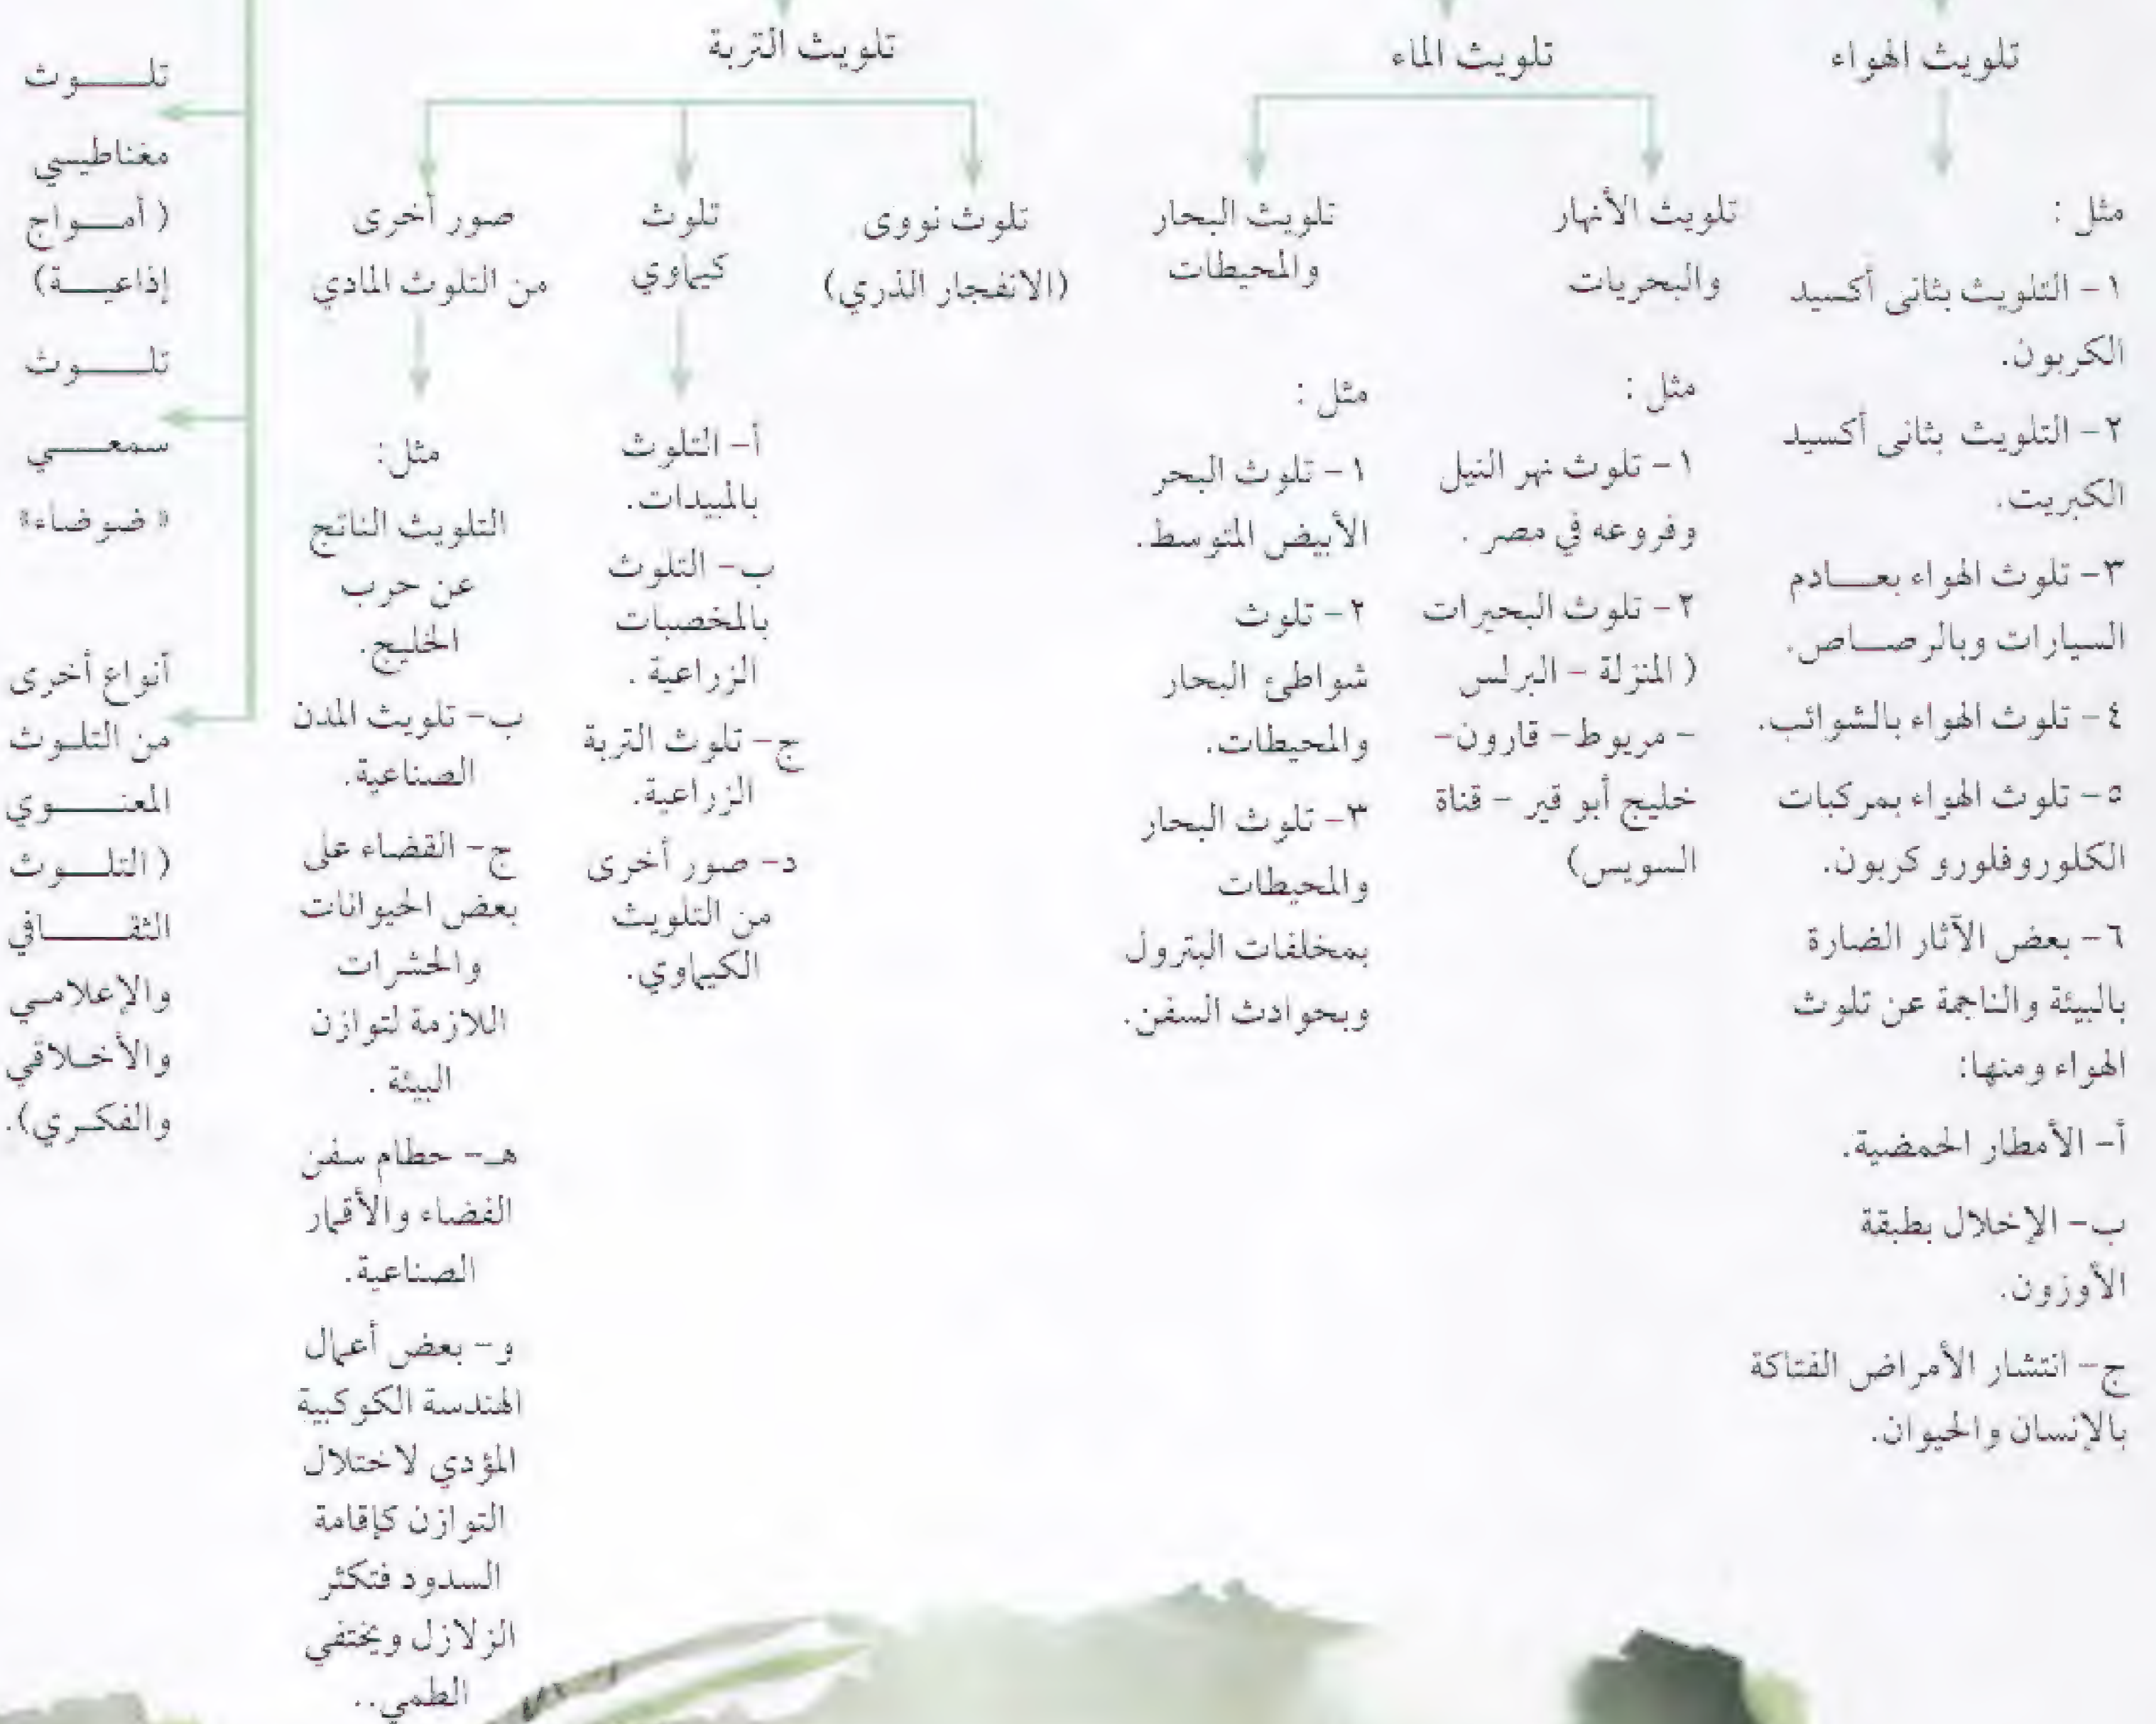 تلويث الهواء
مثل :
١- التلويث بثانى أكسيد
الكربون.
٢- التلويث بثانى أكسيد
الكبريت.
٣- تلوث الهواء بعـــادم
السيارات وبالرصـــاص.
٤- تلوث الهواء بالشوائب.
٥- تلوث الهواء بمركبات
الكلوروفلورو كربون.
٦- بعض الآثار الضارة
بالبيئة والناجمة عن تلوث
الهواء ومنها:
أ- الأمطار الحمضية.
ب- الإخلال بطبقة
الأوزون.
ج- انتشار الأمراض الفتاكة
بالإنسان والحيوان.
تلويث الماء
تلويث الأنهار
والبحريات
مثل :
١- تلوث نهر النيل
وفروعه في مصر .
٢- تلوث البحيرات
( المنزلة - البرلس
- مريوط- قارون-
خليج أبو قير - قناة
السويس)
تلويث البحار
والمحيطات
مثل :
١- تلوث البحر
الأبيض المتوسط.
٢- تلوث
شواطئ البحار
والمحيطات.
٣- تلوث البحار
والمحيطات
بمخلفات البترول
وبحوادث السفن.
تلويث التربة
تلوث نووى
(الانفجار الذري)
تلوث
كيماوي
أ- التلوث
بالمبيدات.
ب- التلوث
بالمخصبات
الزراعية .
ج- تلوث التربة
الزراعية.
د- صور أخرى
من التلويث
الكيماوي.
صور أخرى
من التلوث المادي
مثل:
التلويث الناتج
عن حرب
الخليج.
ب- تلويث المدن
الصناعية.
ج- القضاء على
بعض الحيوانات
والحشرات
اللازمة لتوازن
البيئة .
هـ- حطام سفن
الفضاء والأقمار
الصناعية.
و- بعض أعمال
الهندسة الكوكبية
المؤدي لاختلال
التوازن كإقامة
السدود فتكثر
الزلازل ويختفي
الطمي..
تلـــــوث
مغناطيسي
( أمـــواج
إذاعيـــة)
تلـــــوث
سمعـــــي
« ضوضاء»
أنواع أخرى
من التلوث
المعنـــــوي
( التلـــوث
الثقـــــافي
والإعلامي
والأخلاقي
والفكري).